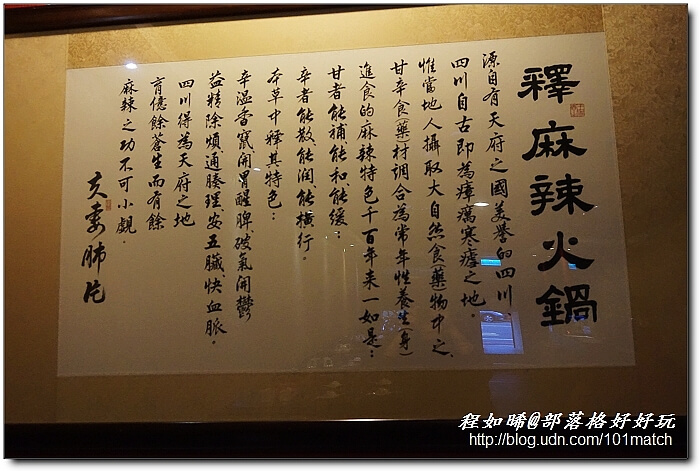 釋麻辣火鍋
源自有天府之國美譽的四川。
四川自古即為瘴癘寒瘧之地。
惟當地人攝取大自然食(藥)物中之、
甘辛食(藥)材調合為常年性養生(身)
進食的麻辣特色千百年来一如是：
甘者能補、能和、能緩：
辛者能散、能潤、能橫行。
本草中釋其特色：
辛溫香竄開胃醒脾、破氣開鬱
益精除煩通腠理安五臟、快血脈。
四川得為天府之地
育億餘蒼生而有餘
麻辣之功不可小覷。
夫妻肺片
程如晞@部落格好好玩
http://blog.udn.com/101match